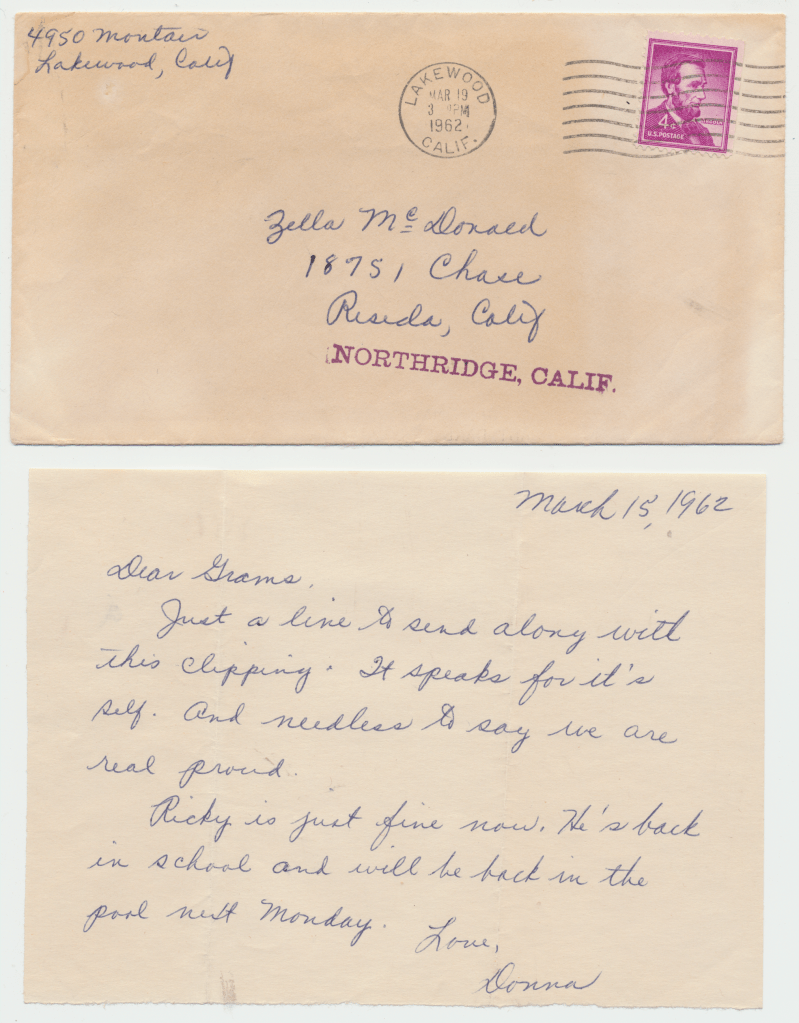 4950 Montair
Lakewood, Calif
LAKEWOOD
MAR 19
3 PM
1962
CALIF.
4¢
U.S. POSTAGE
Zella Mc Donald
18751 Chase
Reseda, Calif
NORTHRIDGE, CALIF.
March 15, 1962
Dear Grams,
Just a line to send along with
this clipping. It speaks for it's
self. And needless to say we are
real proud.
Ricky is just fine now. He's back
in school and will be back in the
pool next Monday.
Love,
Donna